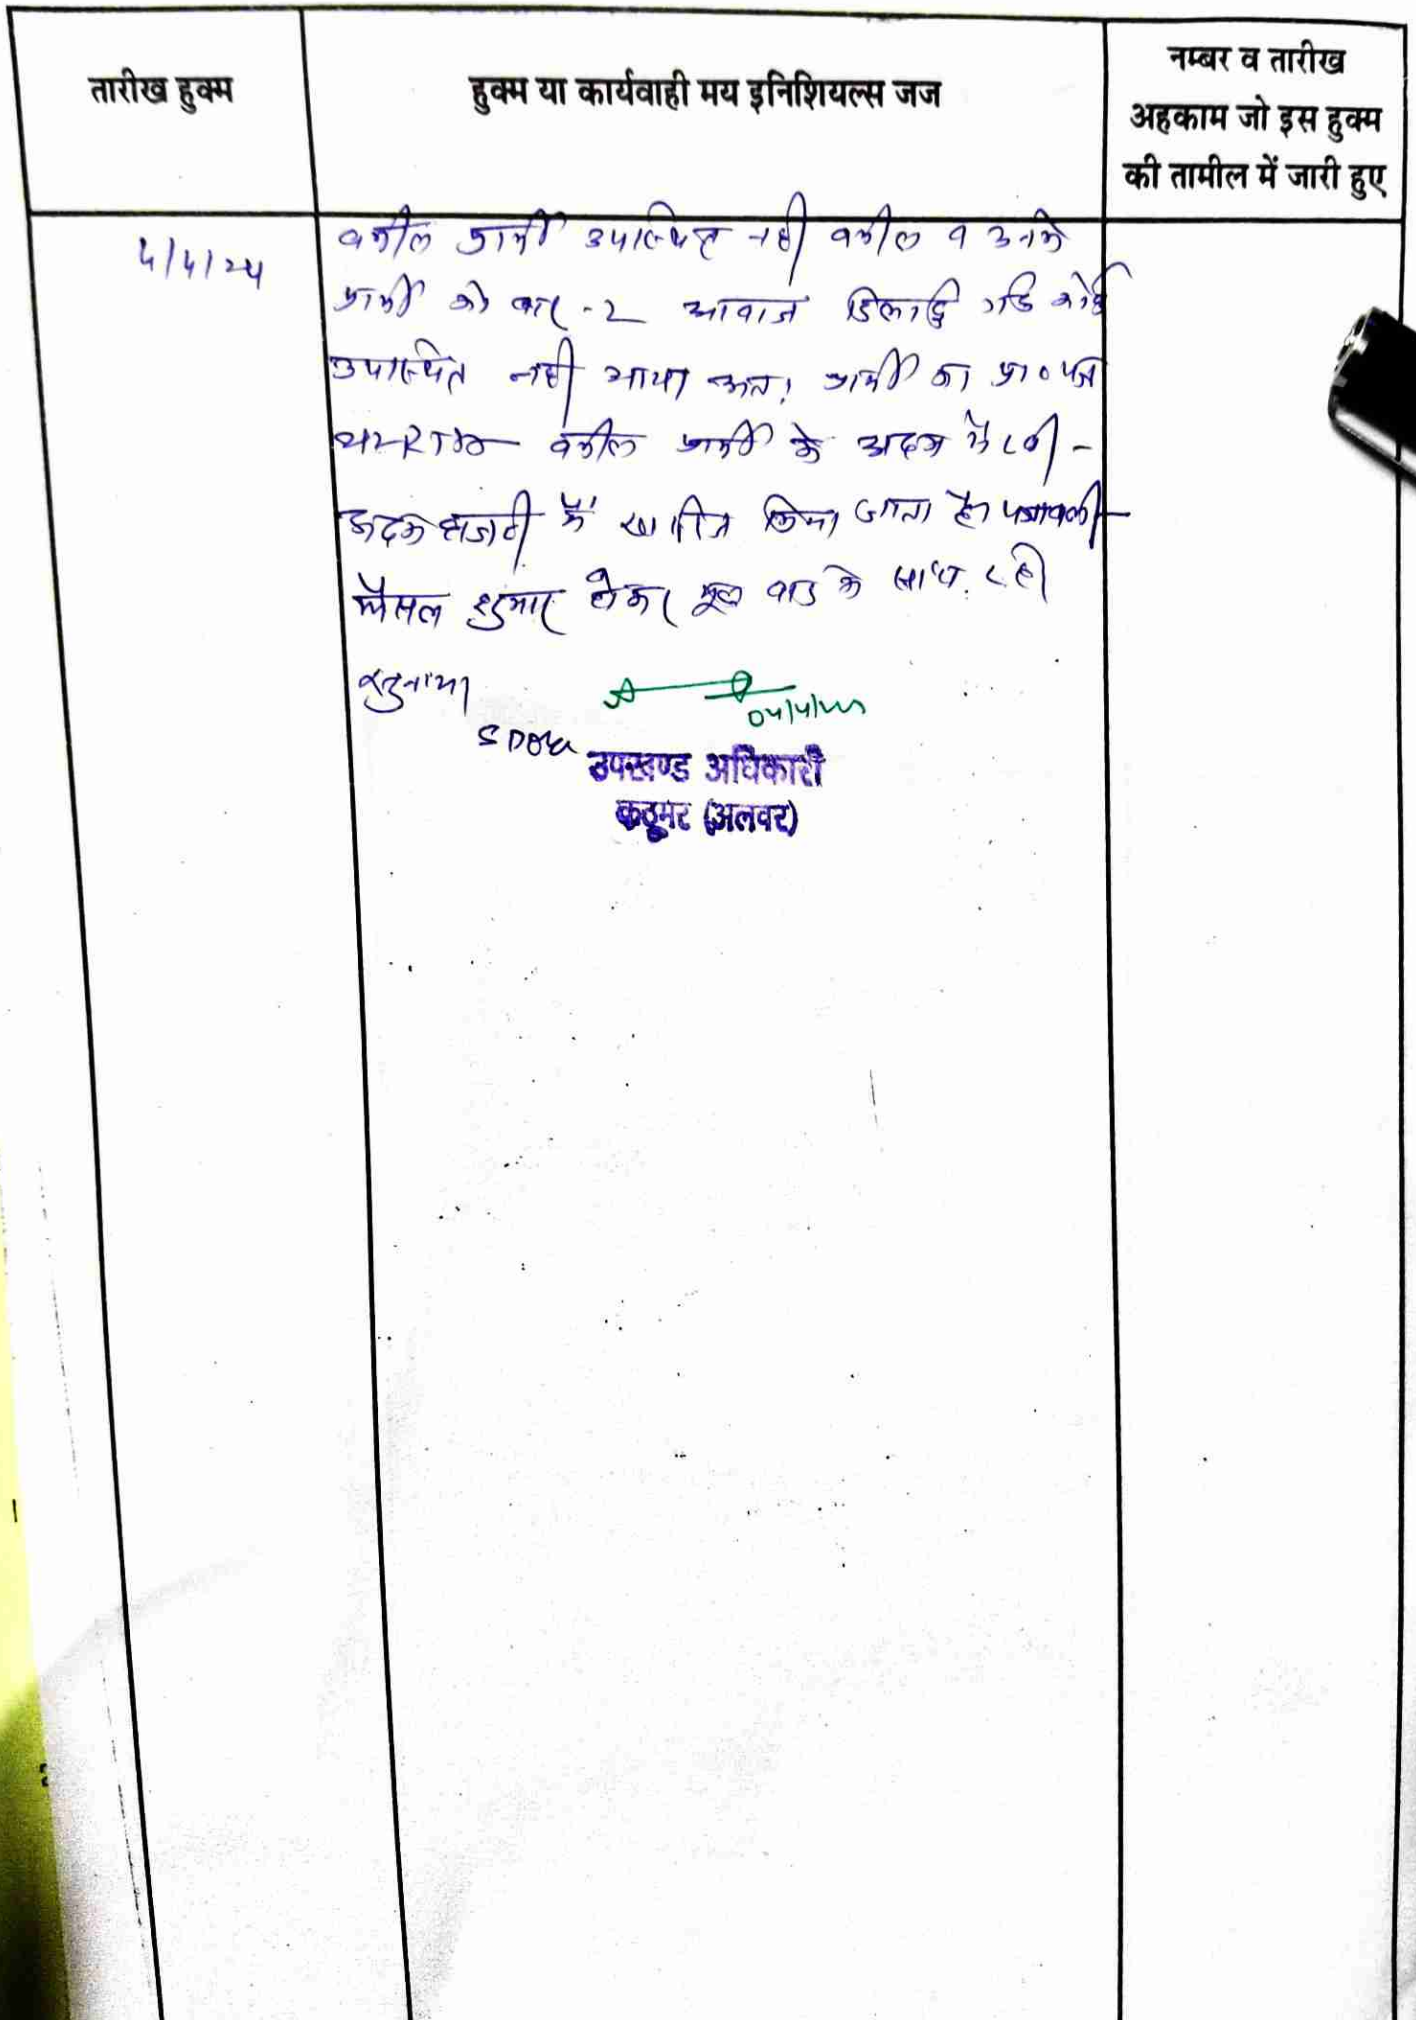 तारीख हुक्म
हुक्म या कार्यवाही मय इनिशियल्स जज
नम्बर व तारीख
अहकाम जो इस हुक्म
की तामील में जारी हुए
वकील प्रार्थी उपस्थित नही वकील व उनके
प्रार्थी को बार-2 आवाज दिलाई गई कोई
उपस्थित नही आया अतः प्रार्थी का प्रा०पत्र
वकील प्रार्थी के अदम में
अदम हाजरी में खारिज किया जाता है। पत्रावली
फैसल शुमार होकर मूल वाद के साथ रहे
उपखण्ड अधिकारी
कठूमर (अलवर)